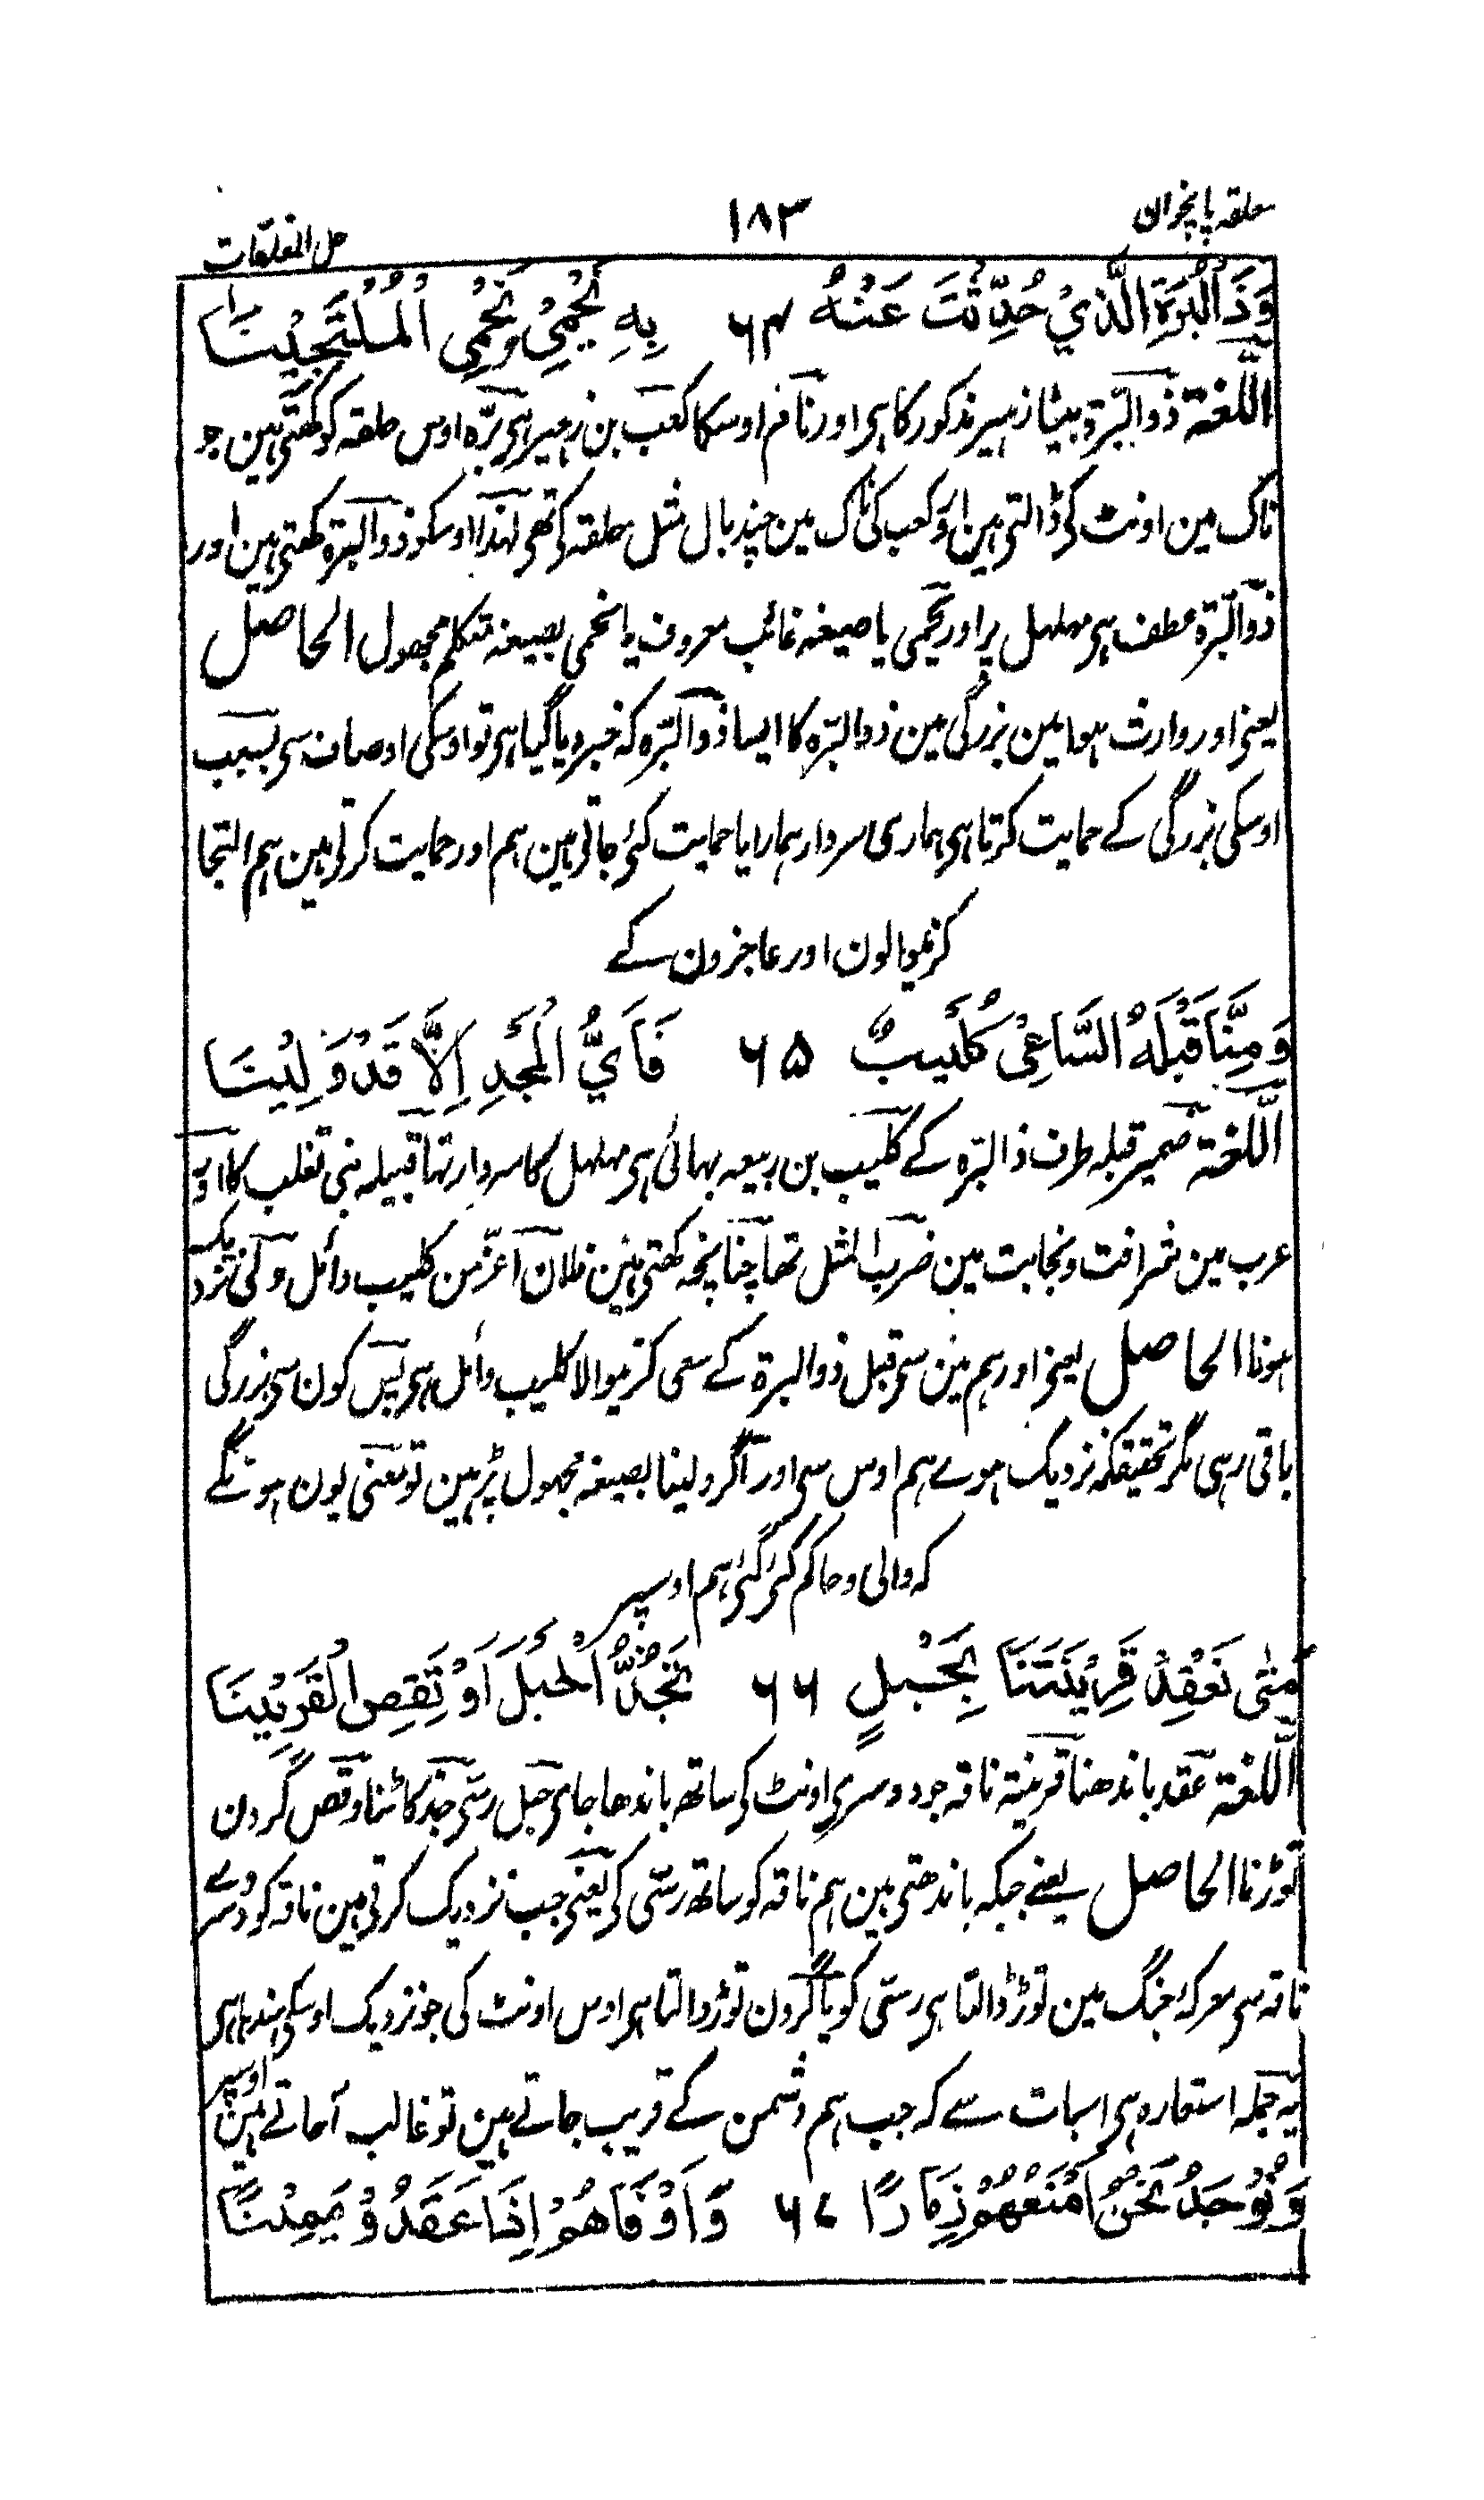 معلقہ پانچوان ۱۸۳ حل المعلقات
وَذَا الْبُرَةِ الَّذِيْ حُدِّثْتَ عَنْهُ ۶۴ بِهٖ نُحْمِيْ وَنَحْمِي الْمُلْتَجِيْنَا
اللّغۃ ذو البرّۃ بیٹا زہیر مذکور کا ہی اور نام اوسکا کعب بن زہیر ہی برّہ اوس حلقہ کو کھتی ہین جو
ناک مین اونٹ کی ڈالتی ہین اور کعب کی ناک مین چند بال مثل حلقہ کی تھی لہذا اوسکو ذو البرۃ کھتی ہین اور
ذو البرّۃ عطف ہی مہلہل پر اور یحمی یا صیغہ غائب معروف یا نحمی بصیغہ متکلم مجھول الحاصل
یعنی اور وارث ہوا مین بزرگی مین ذو البرّہ کا ایسا ذو البرّہ کہ خبر دیا گیا ہی تو اوسکی اوصاف سی بسبب
اوسکی بزرگی کے حمایت کرتا ہی ہماری سردار ہمارا یا حمایت کئی جاتی ہین ہم اور حمایت کرتی ہین ہم التجا
کرنیوالون اور عاجزون کے
وَمِنَّا قَبْلَهُ السَّاعِیْ كُلَيْبٌ ۶۵ فَاَيُّ الْمَجْدِ اِلَّا قَدْ وَلِيْنَا
اللّغۃ ضمیر قبلہ طرف ذا البرّہ کے کلیب بن ربیعہ بھائی ہی مہلہل کا سردار تھا قبیلہ بنی تغلب کا اور
عرب مین شرافت و نجابت مین ضرب المثل تھا چنانچہ کھتی ہین فلان اعزّ من کلیب وائل ولی نزدیک
ہونا الحاصل یعنی اور ہم مین سی قبل ذو البرۃ کے سعی کرنیوالا کلیب وائل ہی پس کون سی بزرگی
باقی رہی مگر تحقیقکہ نزدیک ہوے ہم اوس سی اور اگر ولینا بصیغہ مجہول پڑہین تو معنی یون ہونگے
کہ والی و حاکم کئی گئی ہم اوسپر
مَتٰی نَعْقِدْ قَرِيْنَتَنَا بِحَبْلٍ ۶۶ تَجُذُّ الْحَبْلَ اَوْ تَقِصِ الْقَرِيْنَا
اللّغۃ عقد باندھنا قرینۃ ناقہ جو دوسری اونٹ کی ساتھ باندھا جای حبل رسّی جذ کاٹنا وقص گردن
توڑنا الحاصل یعنے جبکہ باندھتی ہین ہم ناقہ کو ساتھ رسّی کی یعنی جب نزدیک کرتی ہین ناقہ کو دوسرے
ناقہ سی معرکہ جنگ مین توڑ ڈالتا ہی رسّی کو یا گردن توڑ ڈالتا ہی اوس اونٹ کی جو نزدیک اوسکی بندہا ہی
یہ جملہ استعارہ ہی اسبات سے کہ جب ہم دشمن کے قریب جاتے ہین تو غالب آجاتے ہین اوسپر
وَنُوْجَدُ نَحْنُ اَمْنَعَهُمْ ذِمَارًا ۶۷ وَاَوْفَاهُمْ اِذَا عَقَدُوْ يَمِيْنًا